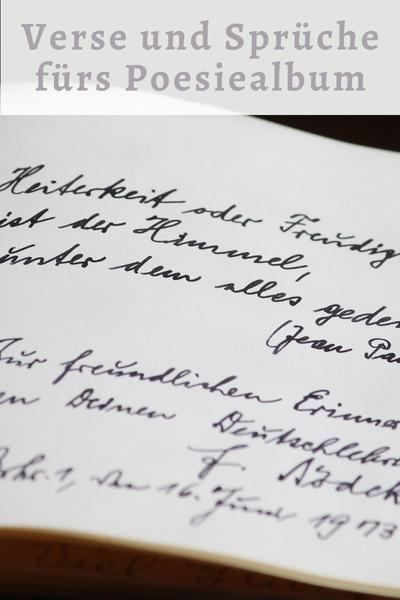 Verse und Sprüche
fürs Poesiealbum
Heiterkeit oder Freudig
ist der Himmel,
unter dem alles gede
(Jean Pa
Zur freundlichen Erinne
an Deinen Deutschlehre
F.
den 16. Juni 1973